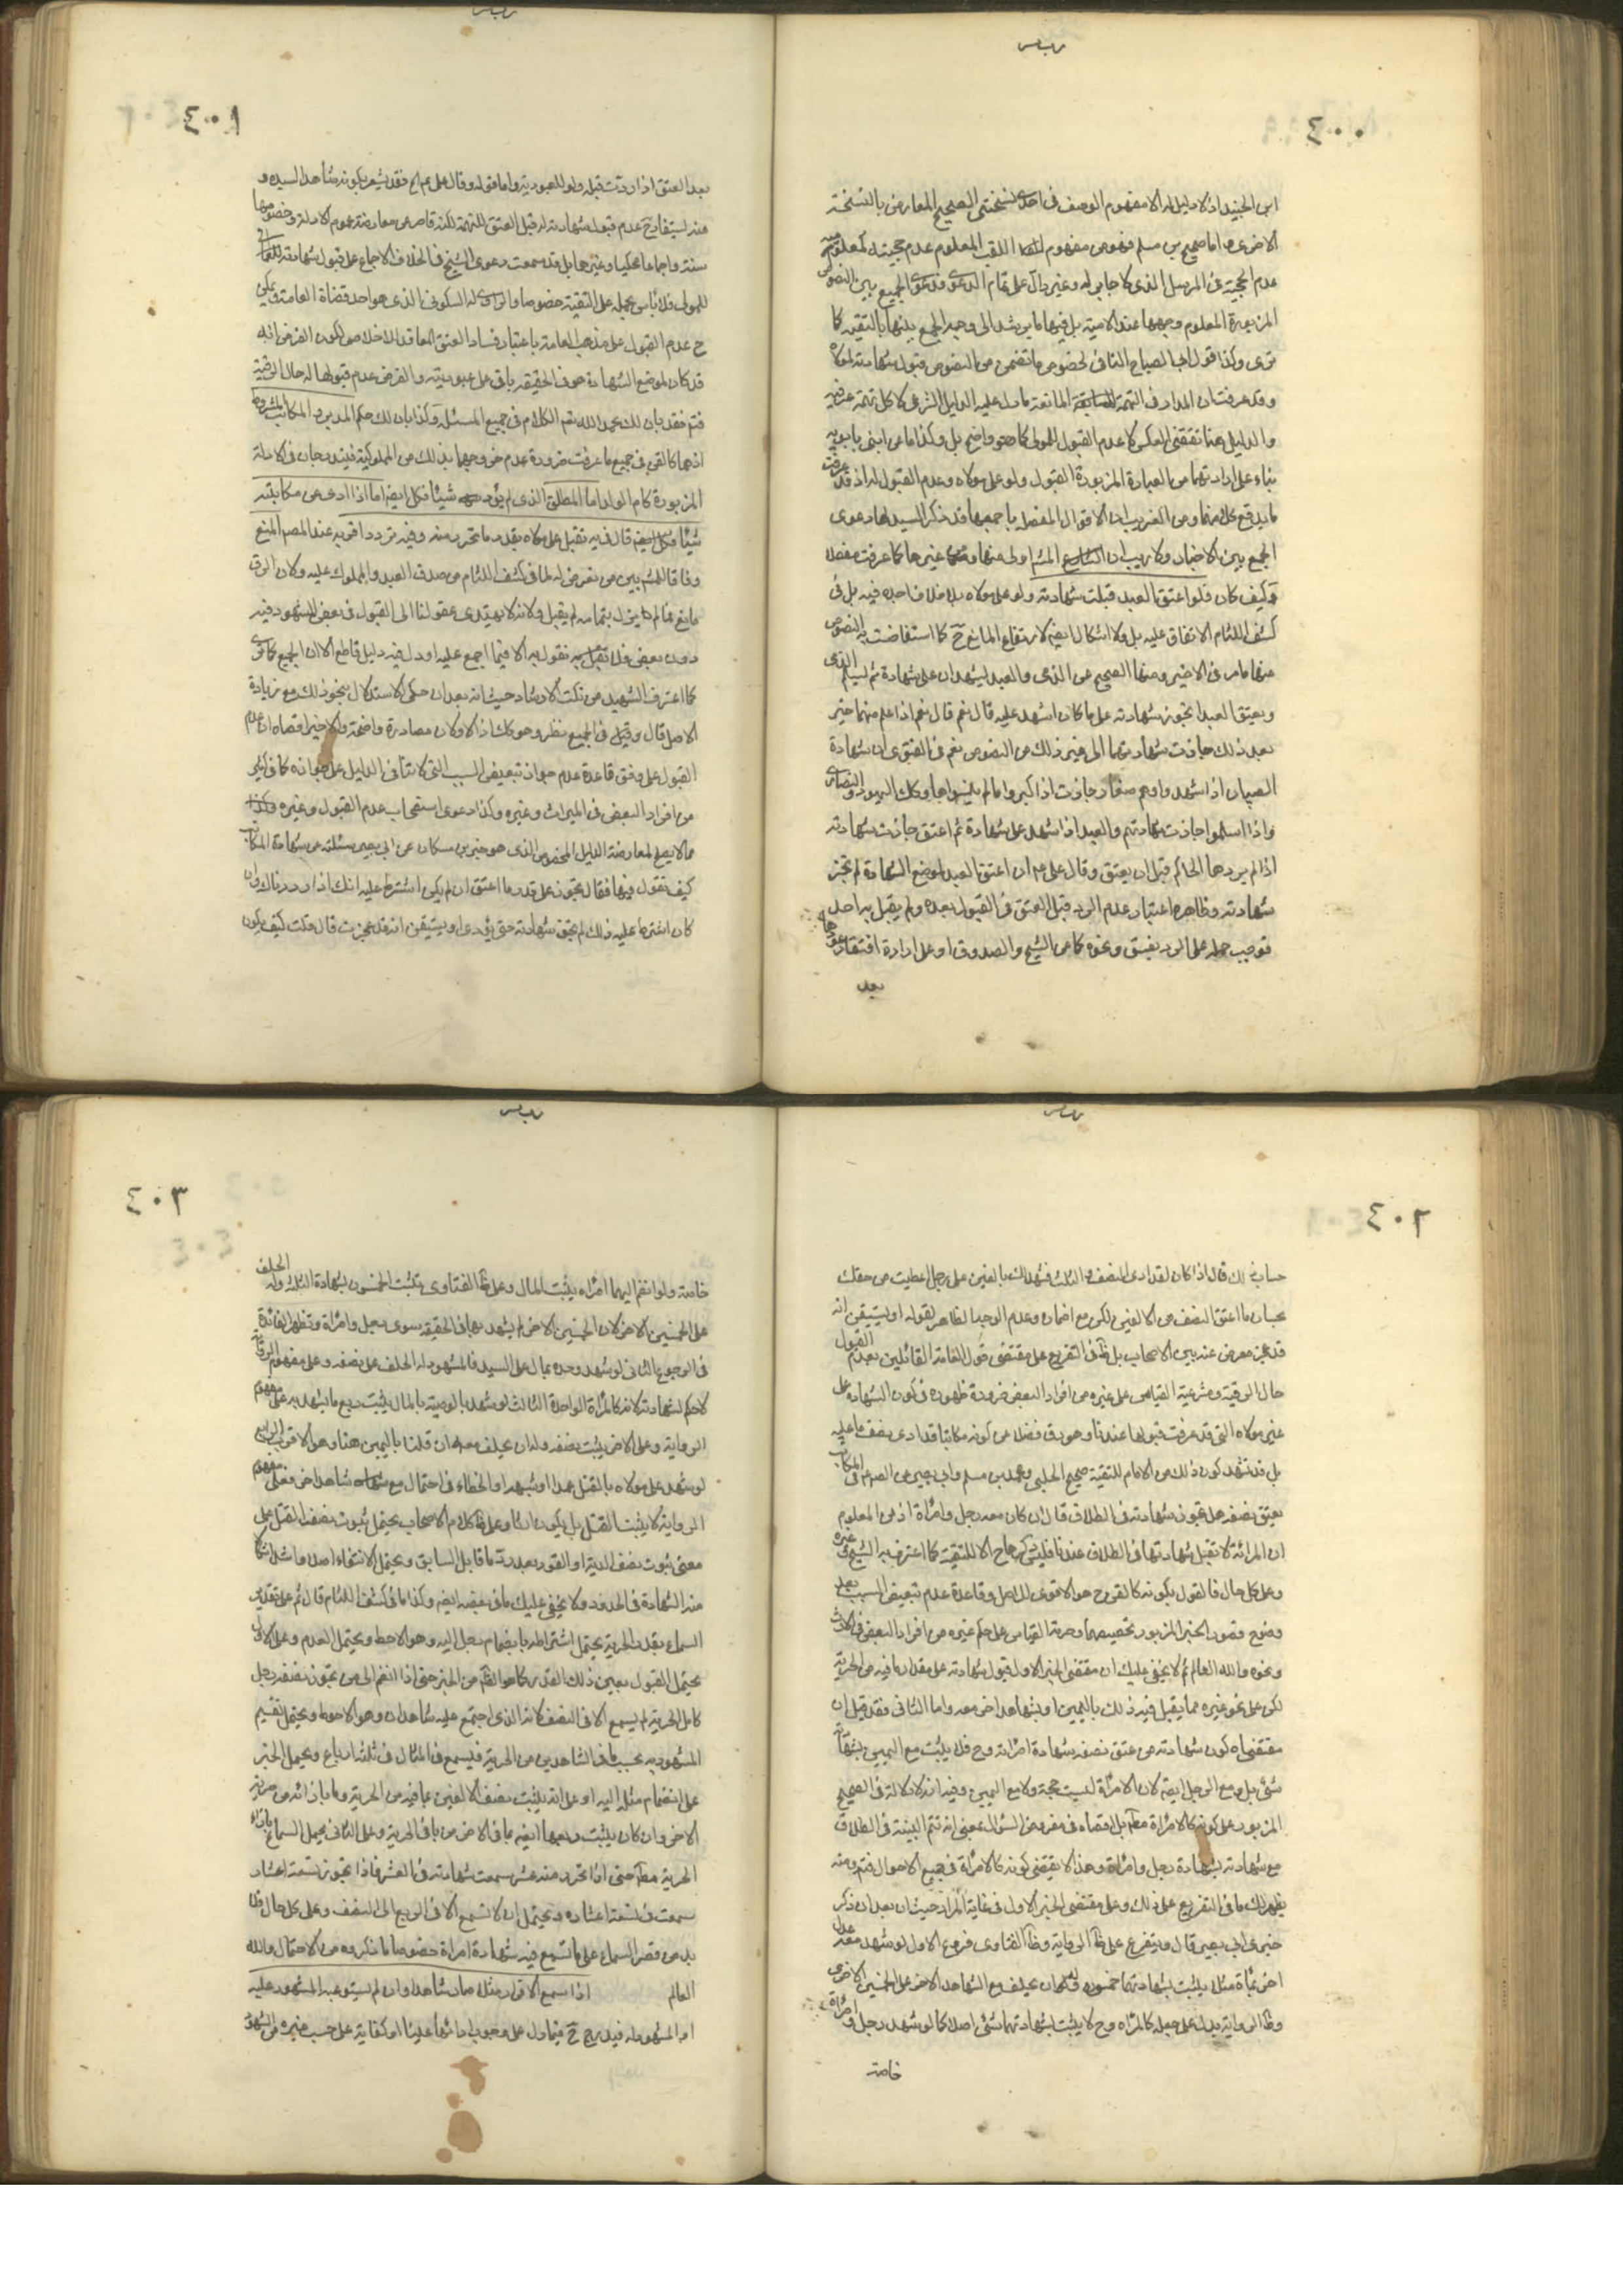 ٤٠٠
ابن الجنيد اذ لا دليل له الا مفهوم الوصف في احدى نسختي الصحيح المعارض بالنسخة
الاخرى واما صحيح بن مسلم فهو من مفهوم اللقب المعلوم عدم حجيته كمعلومية
عدم الحجية في المرسل الذي لا جابر له وغير دال على تمام الدعوى ودعوى الجمع بين النصوص
المزبورة المعلوم وجهها عند الامامية بل فيها ما يرشد الى وجه الجمع بينها بالتقية كما
ترى وكذا قول ابي الصلاح النافي لخصوص ما تضمن من النصوص قبول شهادته لمولاه
وقد عرفت ان المدار في التهمة المانعة ما دل عليه الدليل الشرعي لا كل تهمة عرفية
والدليل هنا تقتضي العكس لا عدم القبول للمولى كما هو واضح بل وكذا ما عن ابني بابويه
بناء على ارادتهما من العبارة المزبورة القبول ولو على مولاه وعدم القبول له اذ قد عرفت
ما يدفع كل منهما ومن الغريب ان الاقوال المفصلة باجمعها قد ذكر السيد لها دعوى
الجمع بين الاخبار ولا ريب ان المشهور اولى منها ومن غيرها كما عرفت مفصلا
وكيف كان فلو اعتق العبد قبلت شهادته ولو على مولاه بلا خلاف اجده فيه بل في
كشف اللثام الاتفاق عليه بل ولا اشكال ايضا لارتفاع المانع ح كما استفاضت به النصوص
منها ما مر في الاخير ومنها الصحيح عن الذمي والعبد يشهدان على شهادة ثم يسلم الذمي
ويعتق العبد اتجوز شهادته على ما كان اشهد عليه قال نعم قال نعم اذا علم منهما خير
بعد ذلك جازت شهادتهما الى غير ذلك من النصوص نعم في القوي ان شهادة
الصبيان اذا شهدوا وهم صغار جازت اذا كبروا ما لم ينسوها وكذلك اليهود والنصارى
واذا اسلموا جازت شهادتهم والعبد اذا شهد على شهادة ثم اعتق جازت شهادته
اذا لم يردها الحاكم قبل ان يعتق وقال علي ع ان اعتق العبد لموضع الشهادة لم تجز
شهادته وظاهره اعتبار عدم الرد قبل العتق في القبول بعده ولم يقل به احد
فوجب حمله على الرد بفسق ونحوه كما عن الشيخ والصدوق او على ارادة افتقار عودها
بعد
٤٠١
بعد العتق اذا ردت قبله ولو للعبودية واما قوله وقال علي ع الخ فقد يشعر بكونه شاهدا لسيده و
منه يستفاد ح عدم قبول شهادته له قبل العتق للتهمة لكنه قاصر عن معارضة عموم الادلة وخصوصها
سنة واجماعا محكيا وغيرها بل قد سمعت دعوى الشيخ في الخلاف الاجماع على قبول شهادته
للمولى فلا باس بحمله على التقية خصوصا والراوي له السكوني الذي هو احد قضاة العامة ويمكن
ح عدم القبول على مذهب العامة باعتبار فساد العتق الفاقد للاخلاص لكون الفرض انه
قد كان لموضع الشهادة فهو في الحقيقة باق على عبوديته والفرض عدم قبولها له حال الرقية
فتم فقد بان لك بحمد الله نعم الكلام في جميع المسئلة وكذا بان لك حكم المدبر والمكاتب المشروط
اذ هما كالقن في جميع ما عرفت ضرورة عدم خروجهما بذلك من المملوكية فيندرجان في الادلة
المزبورة كام الولد اما المطلق الذي لم يؤد شيئا فكل ايضا اما اذا ادى من مكاتبته
شيئا قال فيه تقبل على مولاه بقدر ما تحرر منه وفيه تردد اقربه عند المصنف المنع
وفاقا للمشهور بين من تعرض له لما في كشف اللثام من صدق العبد والمملوك عليه ولان الرق
مانع فما لم يزل بتمامه لم يقبل ولانه لا يهتدي عقولنا الى القبول في بعض المشهود فيه
دون بعض فلا نقول به الا فيما اجمع عليه او دل فيه دليل قاطع الا ان الجميع كما ترى
كما اعترف الشهيد من نكت الارشاد حيث انه بعد ان حكى الاستدلال بنحو ذلك مع زيادة
الاصل قال وقيل في الجميع نظر وهو كك اذ الاولان مصادرة واضحة والاخير اقصاه ان عدم
القبول على وفق قاعدة عدم جواز تبعيض السبب التي لا تنافي الدليل على جوازه كما في كثير
من افراد البعض في الميراث وغيره وكذا دعوى استصحاب عدم القبول وغيره
مما لا يصلح لمعارضة الدليل المخصوص الذي هو خبر بن مسكان عن ابي بصير سئلته عن شهادة المكاتب
كيف تقول فيها فقال تجوز على قدر ما اعتق ان لم يكن اشترط عليه انك اذا رددناك وان
كان اشترط عليه ذلك لم تجز شهادته حتى يؤدي او يستيقن انه قد عجزت قال قلت كيف يكون
٤٠٢
حساب ذلك قال اذا كان لقد ادى النصف والثلث فشهد لك بالفين على رجل اعطيت من حقك
بحساب ما اعتق النصف من الالفين لكن مع اضماره وعدم الوجه الظاهر لقوله او يستيقن انه
قد عجز معرض عنه بين الاصحاب بل ظ التفريع على مقتضى قول العامة القائلين بعدم القبول
حال الرقية ومشرعية القياس على غيره من افراد البعض ضرورة ظهوره في كون الشهادة على
غير مولاه التي قد عرفت قبولها عندنا وهو رق فضلا عن كونه مكاتبا قد ادى نصف ما عليه
بل قد تشهد كون ذلك من الامام للتقية صحيح الحلبي ومحمد بن مسلم وابي بصير عن الصادق ع في المكاتب
يعتق نصفه هل تجوز شهادته في الطلاق قال ان كان معه رجل وامرأة اذ من المعلوم
ان المرأة لا تقبل شهادتها في الطلاق عندنا فليس ذكرها ح الا للتقية كما اعترف به الشيخ وغيره
وعلى كل حال فالقول بكونه كالقن ح هو الاقوى للاصل وقاعدة عدم تبعيض السبب بعد
وضوح قصور الخبر المزبور تخصيصها وحرمة القياس على حكم غيره من افراد البعض في الارث
ونحوه والله العالم ثم لا يخفى عليك ان مقتضى الخبر الاول قبول شهادته على مقدار ما فيه من الحرية
لكن على نحو غيره مما يقبل فيه ذلك باليمين او بشاهد اخر معه واما الثاني فقد قيل ان
مقتضاه كون شهادته من عتق نصفه شهادة امرأة وح فلا يثبت مع اليمين بشهادته
شئ بل ومع الرجل ايضا لان الامرأة ليست حجة ولا مع اليمين وفيه انه لا دلالة في الصحيح
المزبور على كونه كالامرأة مطلقا بل اقصاه في مفروض السؤال بمعنى انه تتم البينة في الطلاق
مع شهادته بشهادة رجل وامرأة وهذا لا يقتضي كونه كالامرأة في جميع الاحوال فتم ومنه
يظهر لك ما في التفريع على ذلك وعلى مقتضى الخبر الاول في غاية المراد حيث ان بعد ان ذكر
خبري ابي بصير قال ويتفرع على ظ الرواية وظ الفتاوى فروع الاول لو شهد معه عدل
اخر بمأة مثلا يثبت بشهادتهما خمسون وله ان يحلف مع الشاهد الاخر على الخمسين الاخرى
وظ الرواية يدل على جعله كالمرأة وح لا يثبت بشهادتهما شئ اصلا كما لو شهد رجل وامرأة
خاصة
٤٠٣
خاصة ولو انضم اليهما امرأة يثبت المال وعلى ظ الفتاوى يثبت الخمسون بشهادة الثلثة وله الحلف
على الخمسين الاخر لان الخمسين الاخر لم يشهد بها في الحقيقة سوى رجل وامرأة وتظهر الفائدة
في الرجوع الثاني لو شهد وحده بمال على السيد فالمشهود له الحلف على نصفه وعلى مفهوم الرواية
لا حكم لشهادته لانه كالمرأة الواحدة الثالث لو شهد بالوصية بالمال يثبت ربع ما شهد به على مفهوم
الرواية وعلى الاخر يثبت نصفه وله ان يحلف معه ان قلنا باليمين هنا وهو الاقرب الرابع
لو شهد على مولاه بالقتل عمدا او شبهه او الخطاء في احتمال مع شاهد اخر فعلى مفهوم
الرواية لا يثبت القتل بل يكون لوثا وعلى ظ كلام الاصحاب يحتمل ثبوت نصف القتل على
معنى ثبوت نصف الدية او القود بعد رد ما قابل السابق ويحتمل الانتفاء اصلا واشد اشكالا
منه الشهادة في الحدود ولا يخفى عليك ما في بعضه ايضا وكذا ما في كشف اللثام قال ثم على تقدير
السماع بقدر الحرية يحتمل اشتراطه بانضمام رجل اليه وهو الاحوط ويحتمل العدم وعلى الاول
يحتمل القبول بعين ذلك القدر كما هو الظ من الخبر حتى اذا انضم الى من تحرر نصفه رجل
كامل الحرية لم يسمع الا في النصف لانه الذي اجتمع عليه شاهدان وهو الاحوط ويحتمل تقسيم
المشهود به بحسب ما في الشاهدين من الحرية فيسمع في المثال في ثلثة ارباع ويحمل الخبر
على انضمام مثله اليه او على انه يثبت نصف الالفين بما فيه من الحرية وما بازائه من حرية
الاخر وان كان يثبت ربعها ايضا بما في الاخر من باقي الحرية وعلى الثاني يحمل السماع بازاء
الحرية مطلقا حتى اذا تحرر منه عشر سمعت شهادته في العشر فاذا تحرر تسعة اعشاره
سمعت في تسعة اعشاره ويحتمل ان لا تسمع الا في الربع الى النصف وعلى كل حال فلا
بد من قصر السماع على ما تسمع فيه شهادة امراة خصوصا ما ذكروه من الاحتمال والله
العالم اذا سمع الاقرار مثلا صار شاهدا وان لم يستوعبه المشهود عليه
او المشهود له فيندرج ح فيما دل على وجوب ادائها عليه